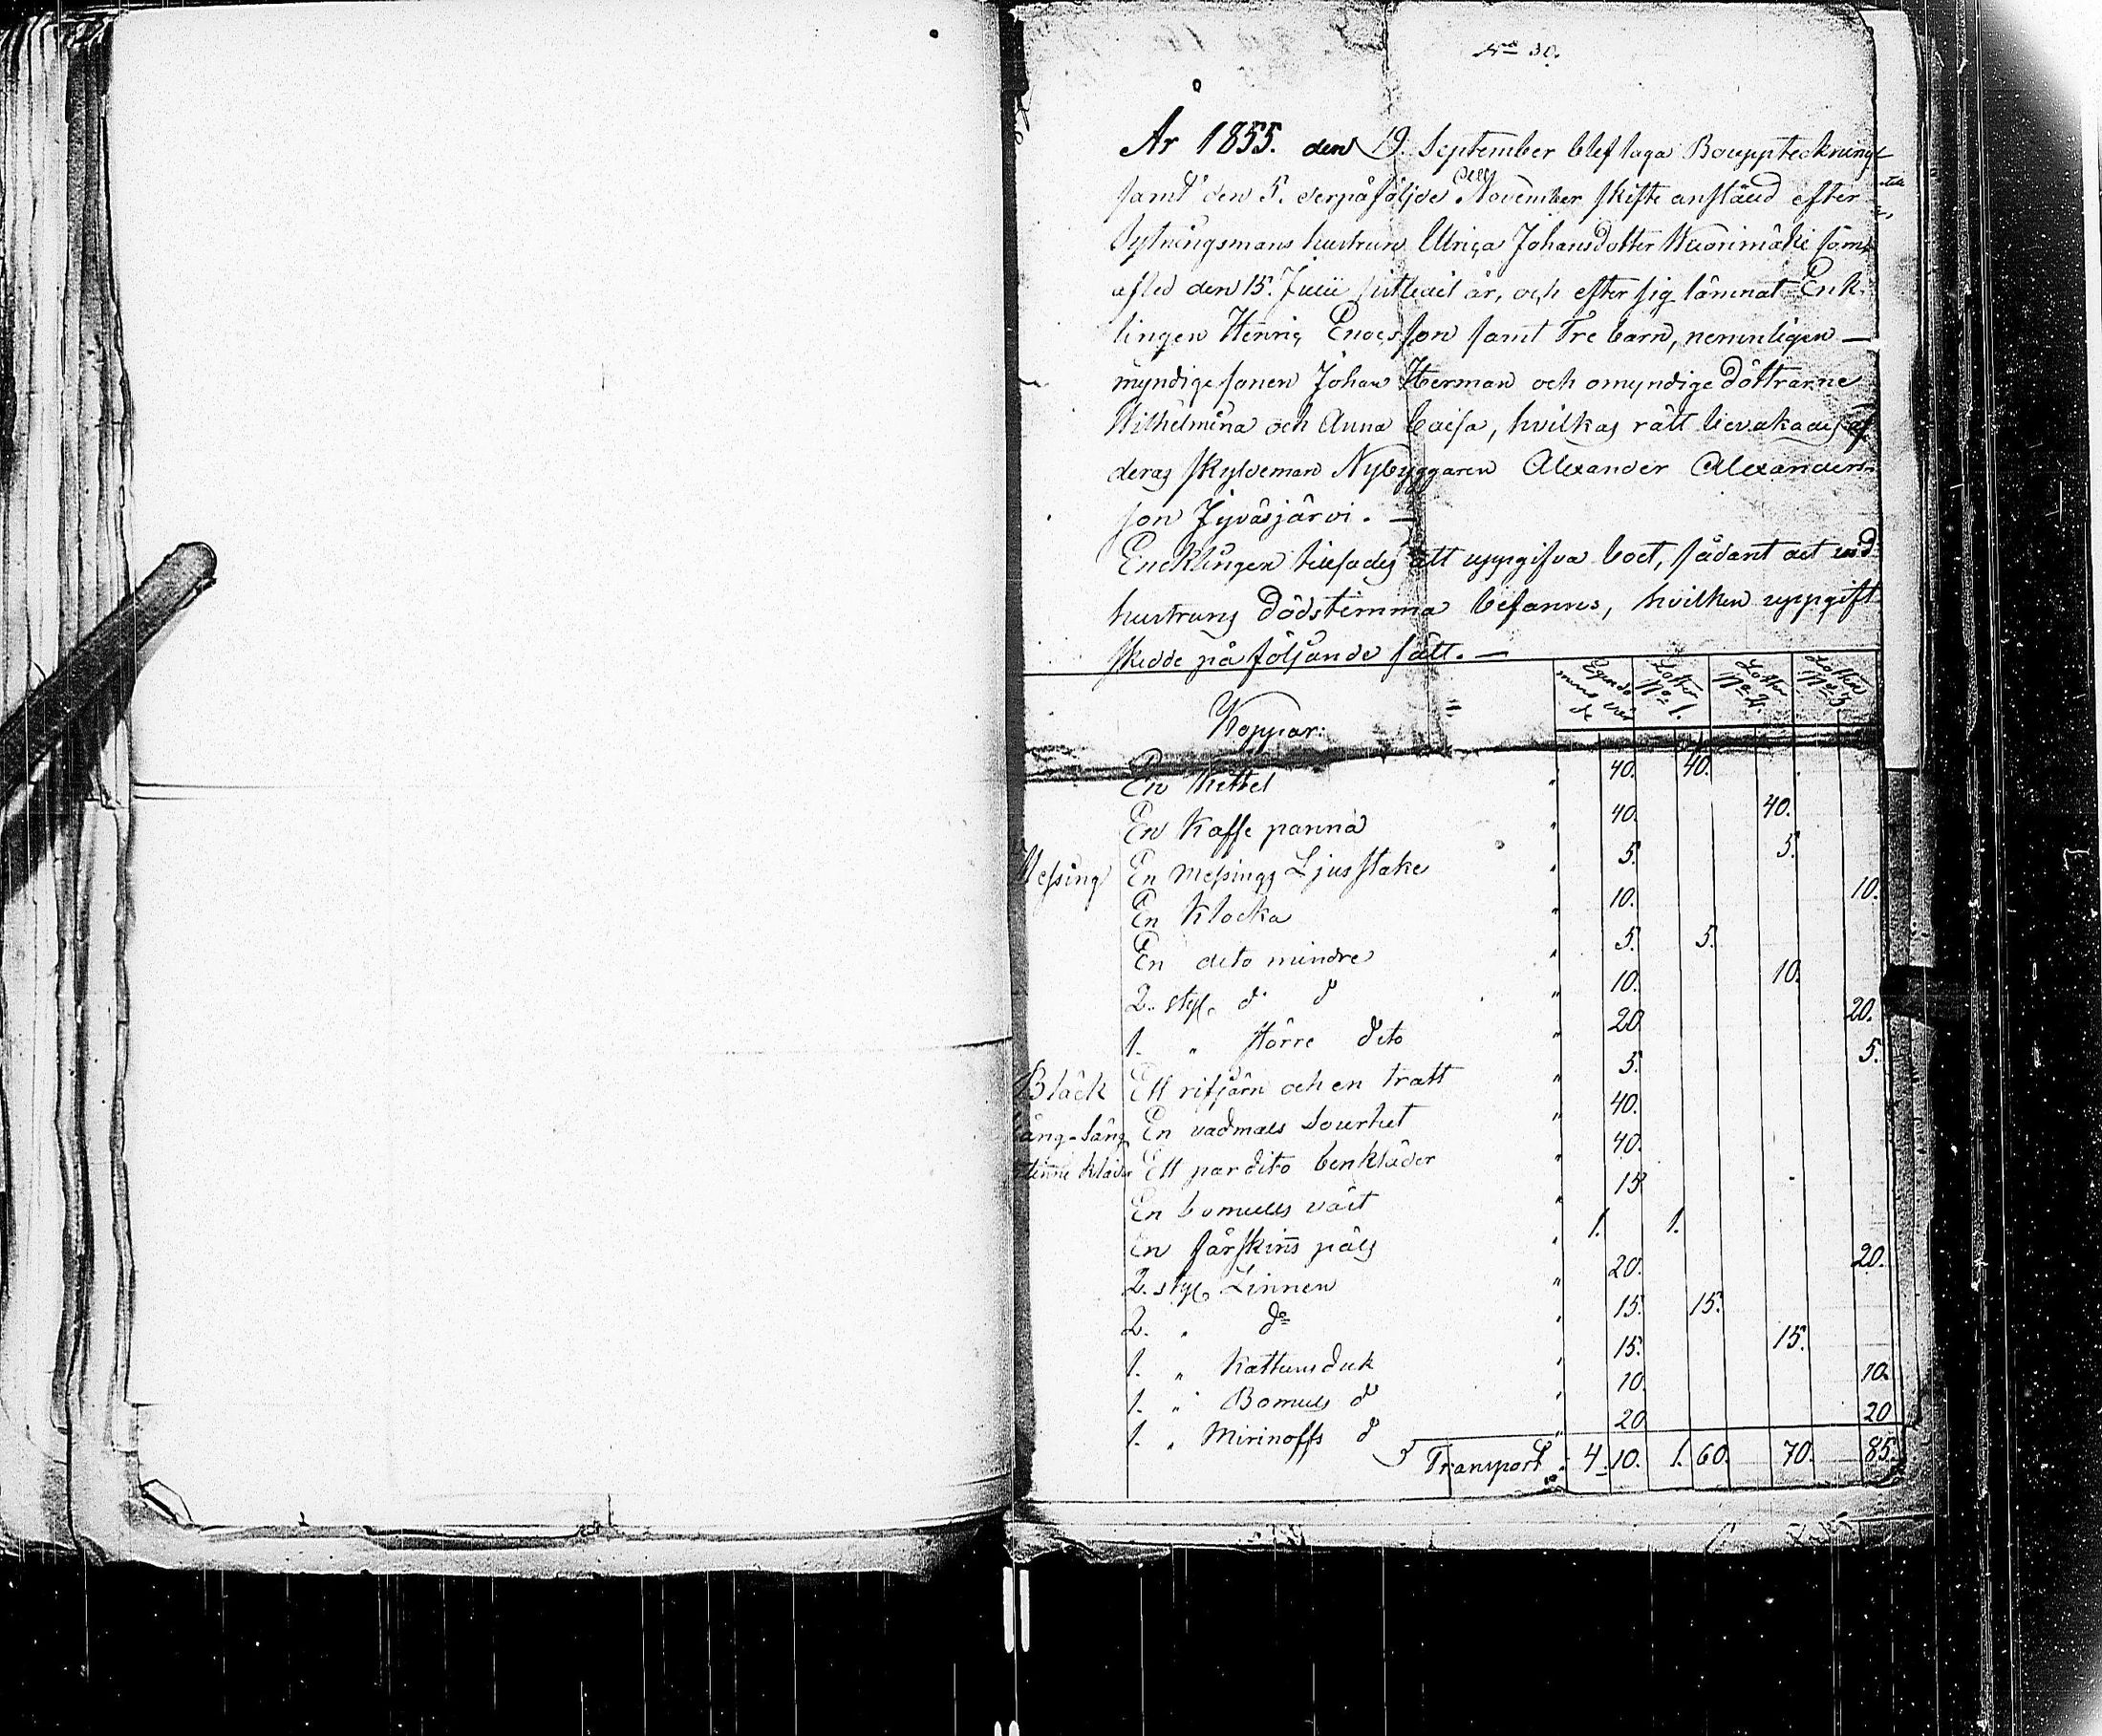 No 30.
År 1855. den 19. September blef laga Bouppteckning
samt den 5. derpåföljde November skifte anstäld efter
Sytningsmans hustrun Ulrica Johansdotter Wuorimäki som
afled den 15. Junii sistledit år, och efter sig lämnat Enk-
lingen Henric Enocsson samt Tre barn, nemnligen —
myndige sonen Johan Herman och omyndige döttrarne
Wilhelmina och Anna Caisa, hvilkas rätt bevakades af
deras skyldeman Nybyggaren Alexander Alexanders-
son Jyväsjärvi. —
Encklingen tillsades att uppgifva boet, sådant det vid
hustruns dödstimma befanns, hvilken uppgift
skedde på följande sätt. —
Egendo mens värde Lotten No 1. Lotten No 2. Lotten No 3.
Koppar:
En kittel " 40. 40.
En Kaffe panna " 40. 40.
Messing En Messings Ljusstake " 5. 5.
En Klocka " 10. 10.
En dito mindre " 5. 5.
2. styc. do do " 10. 10.
1. " större dito " 20. 20.
Bläck Ett rifjärn och en tratt " 5. 5.
Gång-Säng En vadmals Sourtut " 40.
Linne kläder Ett par dito benkläder " 40.
En bomulls väst " 15
En fårskinns päls " 1. 1.
2. styc Linnen " 20. 20.
2. " do " 15. 15.
1. " Kattunsduk " 15. 15.
1. " Bomulls do " 10. 10.
1. " Mirinoffs do " 20 20
Transport 4. 10. 1. 60. 70. 85.